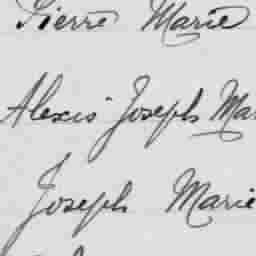 Pierre Marie
Alexis Joseph Mar
Joseph Marie